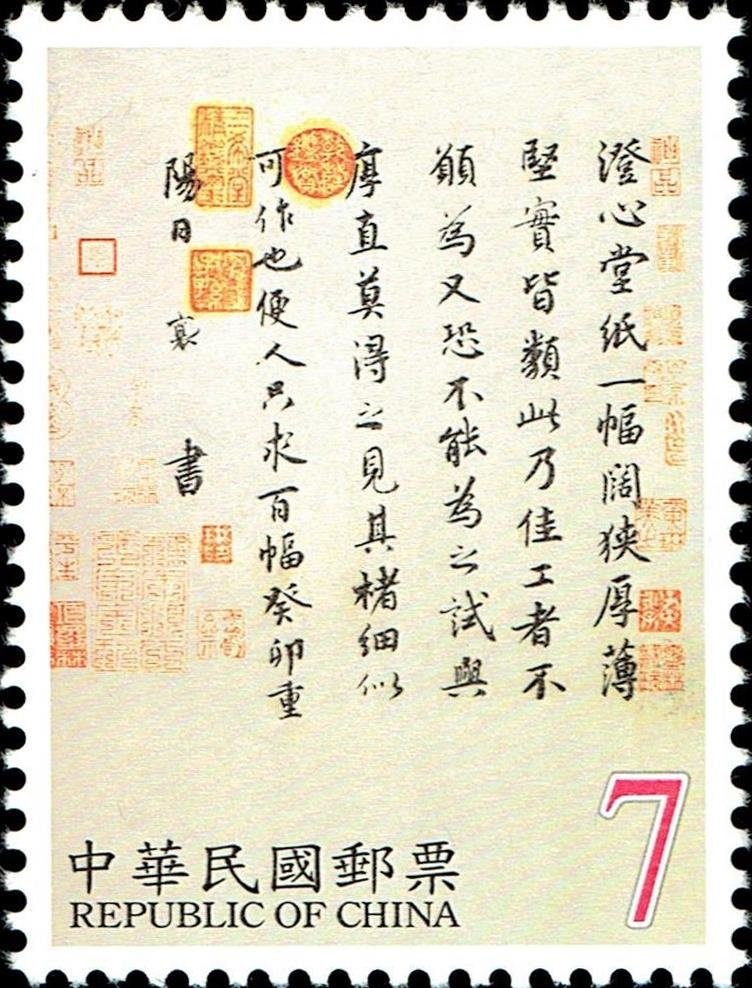 澄心堂紙一幅闊狹厚薄
堅實皆類此乃佳工者不
願為又恐不能為之試與
厚直莫得之見其楮細似
可作也便人只求百幅癸卯重
陽日 襄 書
7
中華民國郵票
REPUBLIC OF CHINA